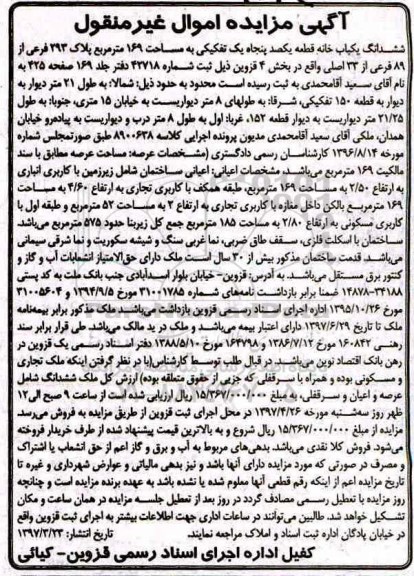 آگهی مزایده اموال غیرمنقول
ششدانگ یکباب خانه قطعه یکصد پنجاه یک تفکیکی به مساحت ۱۶۹ مترمربع پلاک ۲۹۳ فرعی از
۸۹ فرعی از ۳۳ اصلی واقع در بخش ۴ قزوین ذیل ثبت شماره ۴۲۷۱۸ دفتر جلد ۱۶۹ صفحه ۴۲۵ به
نام آقای سعید آقامحمدی به ثبت رسیده است محدود به حدود ذیل: شمالا: به طول ۲۱ متر دیوار به
دیوار به قطعه ۱۵۰ تفکیکی، شرقا: به طولهای ۸ متر دیواریست به خیابان ۱۵ متری، جنوبا: به طول
۲۱/۲۵ متر دیواریست به دیوار قطعه ۱۵۲، غربا: اول به طول ۸ متر درب و دیواریست به پیاده‌رو خیابان
همدان، ملکی آقای سعید آقامحمدی مدیون پرونده اجرایی کلاسه ۸۹۰۰۶۳۸ طبق صورتمجلس شماره
مورخه ۱۳۹۶/۸/۱۴ کارشناسان رسمی دادگستری (مشخصات عرصه: مساحت عرصه مطابق با سند
مالکیت ۱۶۹ مترمربع می‌باشد، مشخصات اعیانی: اعیانی ساختمان شامل زیرزمین با کاربری انباری
به ارتفاع ۲/۵۰ به مساحت ۱۶۹ مترمربع، طبقه همکف با کاربری تجاری به ارتفاع ۴/۶۰ به مساحت
۱۶۹ مترمربع بالکن داخل مغازه با کاربری تجاری به ارتفاع ۲ به مساحت ۵۲ مترمربع و طبقه اول با
کاربری مسکونی به ارتفاع ۲/۸۰ به مساحت ۱۸۵ مترمربع جمع کل زیربنا حدود ۵۷۵ مترمربع می‌باشد.
ساختمان با اسکلت فلزی، سقف طاق ضربی، نما غربی سنگ و شیشه سکوریت و نما شرقی سیمانی
می‌باشد. قدمت ساختمان مذکور بیش از ۳۰ سال است ملک دارای حق‌الامتیاز انشعابات آب و گاز و
کنتور برق مستقل می‌باشد. به آدرس: قزوین- خیابان بلوار اسدآبادی جنب بانک ملت به کد پستی
۳۴۱۸۸-۱۴۸۷۸ ضمنا برابر بازداشت نامه‌های شماره ۳۱۰۰۱۷۸۵ مورخ ۱۳۹۴/۹/۵ و ۳۱۰۰۵۶۰۴
مورخ ۱۳۹۵/۱۰/۲۶ اداره اجرای اسناد رسمی قزوین بازداشت می‌باشد. ملک مذکور برابر بیمه‌نامه
ملک تا تاریخ ۱۳۹۷/۶/۲۹ دارای اعتبار بیمه می‌باشد و ملک در ید مالک می‌باشد. طی قرار برابر سند
رهنی ۱۶۰۸۴۲ مورخ ۱۳۸۶/۷/۱۲ و ۱۶۴۷۹۸ مورخ ۱۳۸۸/۵/۱۰ دفتر اسناد رسمی یک قزوین در
رهن بانک اقتصاد نوین می‌باشد. در قبال طلب توسط کارشناس(با در نظر گرفتن اینکه ملک تجاری
و مسکونی بوده و همراه با سرقفلی که جزیی از حقوق متعلقه بوده) ارزش کل ملک ششدانگ شامل
عرصه و اعیان و سرقفلی، به مبلغ ۱۵/۳۶۷/۰۰۰/۰۰۰ ریال ارزیابی شده است از ساعت ۹ صبح الی۱۲
ظهر روز سه‌شنبه مورخه ۱۳۹۷/۴/۲۶ در محل اجرای ثبت قزوین از طریق مزایده به فروش می‌رسد.
مزایده از مبلغ ۱۵/۳۶۷/۰۰۰/۰۰۰ ریال شروع و به بالاترین قیمت پیشنهاد شده از طرف خریدار فروخته
می‌شود. فروش کلا نقدی می‌باشد. بدهی‌های مربوط به آب و برق و گاز اعم از حق انشعاب یا اشتراک
و مصرف در صورتی که مورد مزایده دارای آنها باشد و نیز بدهی مالیاتی و عوارض شهرداری و غیره تا
تاریخ مزایده اعم از اینکه رقم قطعی آنها معلوم شده یا نشده باشد به عهده برنده مزایده است و چنانچه
روز مزایده با تعطیل رسمی مصادف گردد در روز بعد از تعطیل جلسه مزایده در همان ساعت و مکان
تشکیل خواهد شد. طالبین می‌توانند در ساعات اداری جهت اطلاعات بیشتر به اجرای ثبت قزوین واقع
در خیابان پادگان اداره ثبت اسناد و املاک مراجعه نمایند. تاریخ انتشار: ۱۳۹۷/۳/۲۳
کفیل اداره اجرای اسناد رسمی قزوین- کیائی